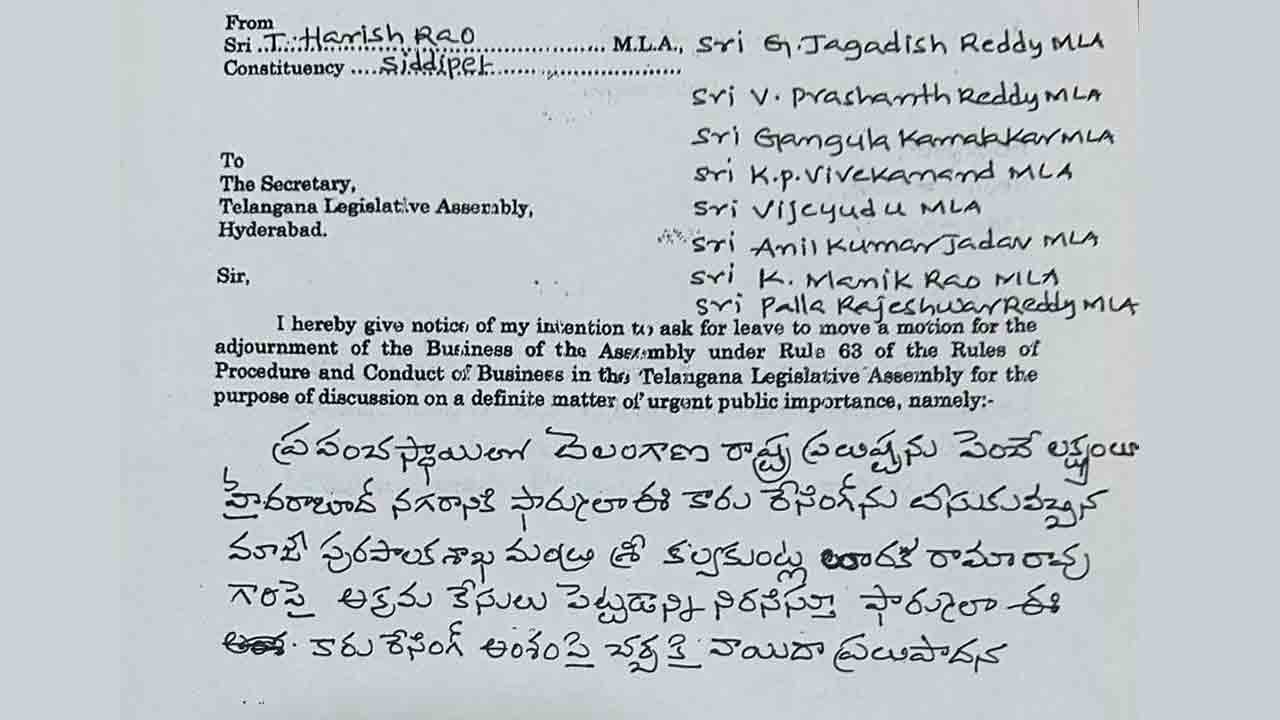 From
Sri ..T. Harish Rao.................... M.L.A.,
Constituency ....Siddipet............................
Sri G. Jagadish Reddy MLA
Sri V. Prashanth Reddy MLA
Sri Gangula Kamalakar MLA
Sri K.P. Vivekanand MLA
Sri Vijeyudu MLA
Sri Anil Kumar Jadav MLA
Sri K. Manik Rao MLA
Sri Palla Rajeshwar Reddy MLA
To
The Secretary,
Telangana Legislative Assembly,
Hyderabad.
Sir,
I hereby give notice of my intention to ask for leave to move a motion for the
adjournment of the Business of the Assembly under Rule 63 of the Rules of
Procedure and Conduct of Business in the Telangana Legislative Assembly for the
purpose of discussion on a definite matter of urgent public importance, namely:-
ప్రపంచస్థాయిలో తెలంగాణ రాష్ట్ర ప్రతిష్టను పెంచే లక్ష్యంతో
హైదరాబాద్ నగరానికి ఫార్ములా ఈ కారు రేసింగ్‌ను తీసుకువచ్చిన
మాజీ పురపాలక శాఖ మంత్రి శ్రీ కల్వకుంట్ల తారక రామారావు
గారిపై అక్రమ కేసులు పెట్టడాన్ని నిరసిస్తూ ఫార్ములా ఈ
కారు రేసింగ్ అంశంపై చర్చకై వాయిదా ప్రతిపాదన